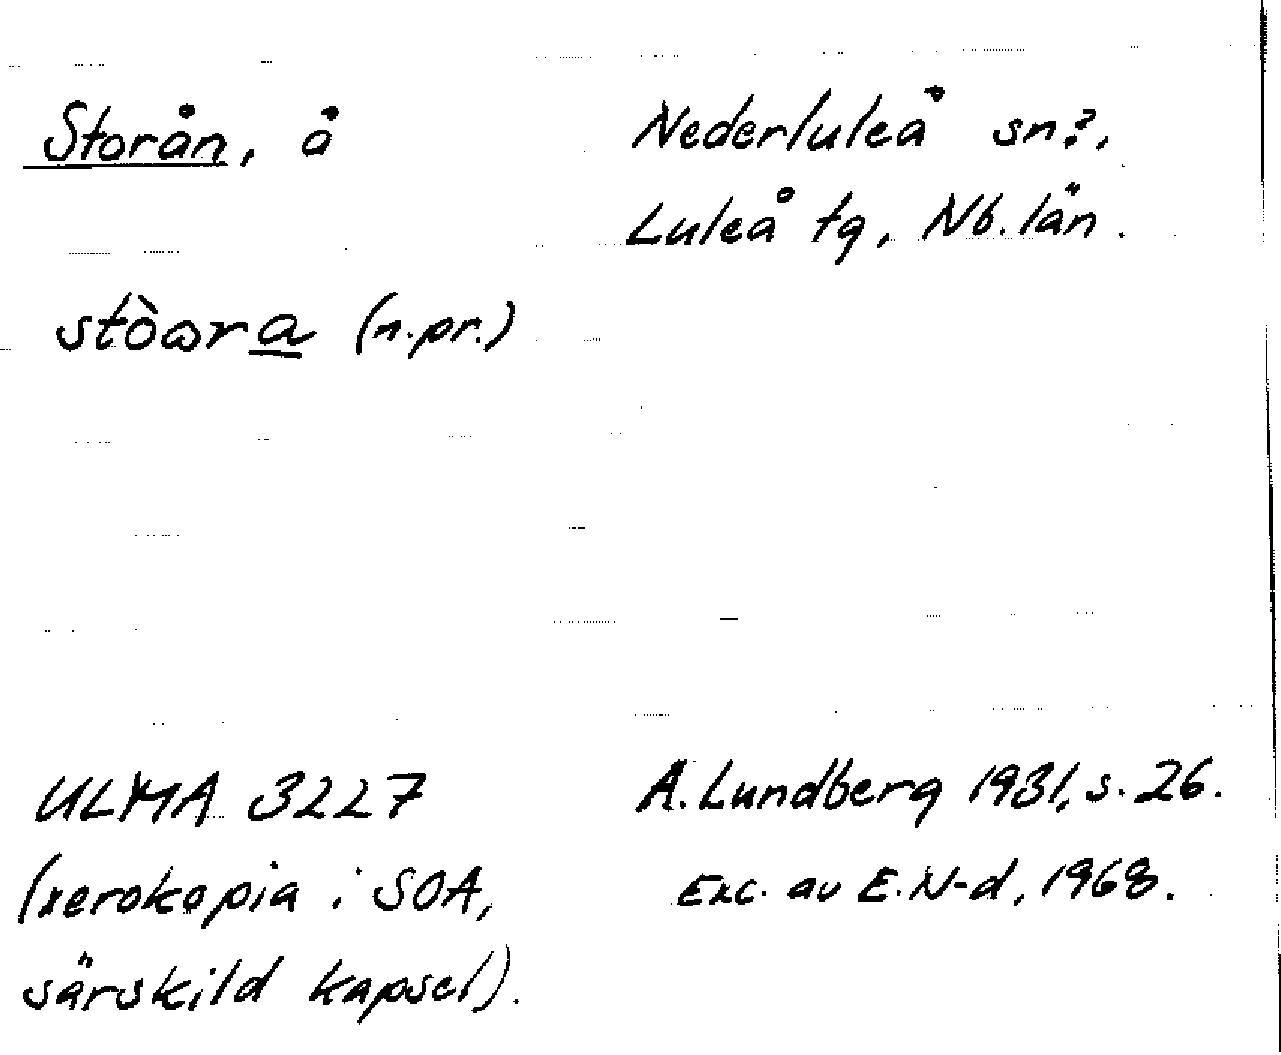 Storån, å
Nederluleå sn?,
Luleå tg, Nb. län.
stòωra (n.pr.)
ULMA 3227
(xerokopia i SOA,
särskild kapsel).
A. Lundberg 1931, s. 26.
Exc. av E. N-d, 1968.